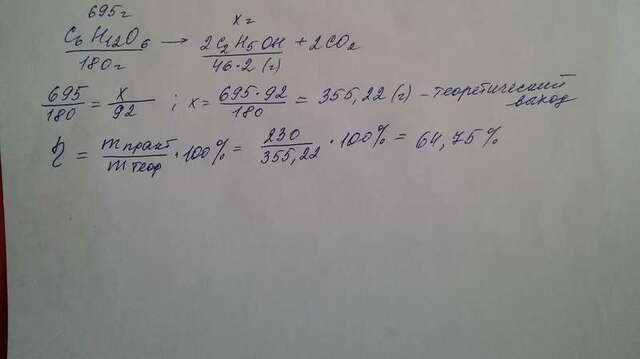 695г хг
C6H12O6 → 2C2H5OH + 2CO2
180г 46·2 (г)
695/180 = x/92 ; x = 695·92/180 = 355,22 (г) – теоретический выход
η = mпракт/mтеор · 100% = 230/355,22 · 100% = 64,75%